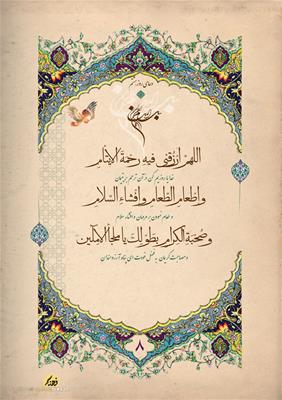 دعای روز هشتم
اللهم ارزقنی فیه رحمة الایتام
خدایا روزیم کن در آن ترحم بر یتیمان
و اطعام الطعام و افشاء السلام
و طعام نمودن بر مردمان و افشاء سلام
و صحبة الکرام بطولک یا ملجأ الآملین
و مصاحبت کریمان به فضل خودت ای پناه آرزومندان
۸